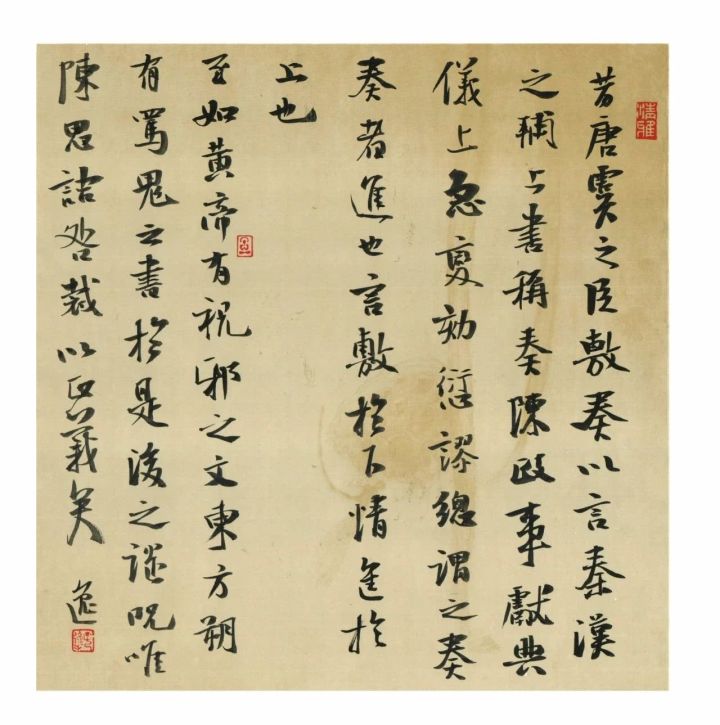 昔唐虞之臣敷奏以言秦漢
之輔上書稱奏陳政事獻典
儀上急變劾愆謬總謂之奏
奏者進也言敷於下情進於
上也
至如黃帝有祝邪之文東方朔
有罵鬼之書於是後之譴呪唯
陳思詰咎裁以正義矣
逸